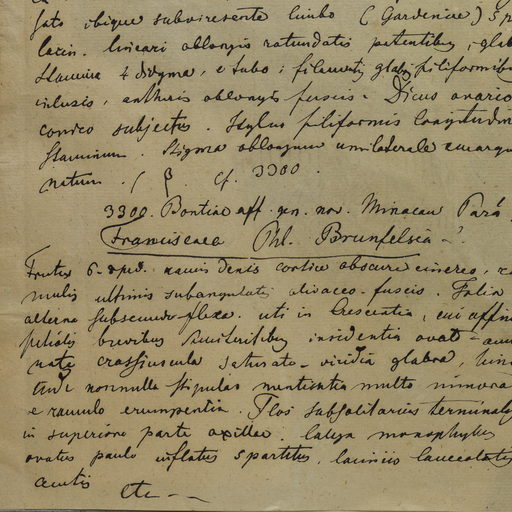 fato ibique subvirescente limbo (Gardeniae) 5 p
lacin. lineari oblongis rotundatis patentibus, glab
Stamina 4 didyma, e tubo; filamentis glabris filiformibu
inclusis, antheris oblongis fuscis. Dicus ovario
conico subjectus. Stylus filiformis longitudin
staminum. Stigma oblongum unilaterale emargi
natum. ( β. cf. 3300.
3300. Bontiae aff. gen. nov. Minacau Pará
Franciscaea Phl. Brunfelsia ?
Frutex 6-8 ped. ramis denis cortice obscure cinereo, ra
mulis ultimis subangulatis olivaceo-fuscis. Folia
alterna subsecundo-flexa. uti in Crescentia, cui affin
petiolis brevibus insidentia ovat - acum
nata crassiuscula saturato-viridia glabra,
nonnulla stipulas mentientia multo minora
e ramulo erumpentia. Flos subsolitarius terminal
in superiore parte axillae. Calyx monophyllus
ovatus paulo inflatus 5 partitus, laciniis lanceolatis
acutis etc - -